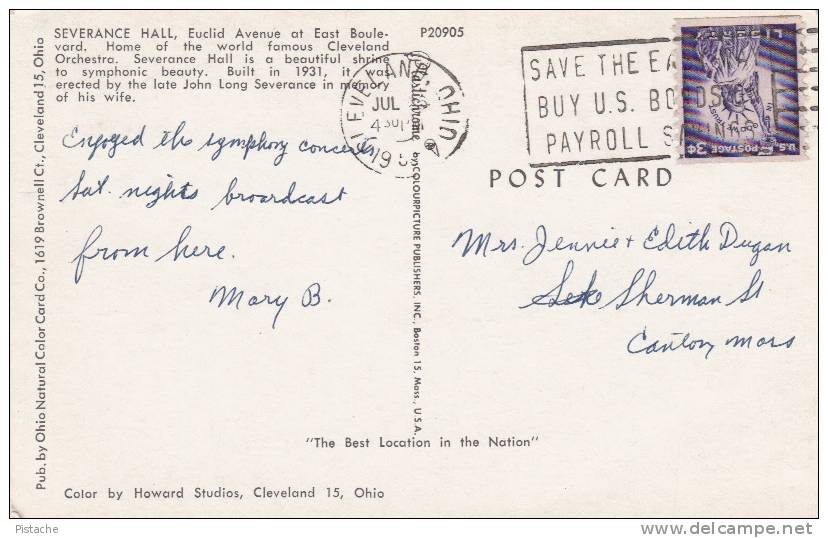 SEVERANCE HALL, Euclid Avenue at East Boule-
vard. Home of the world famous Cleveland
Orchestra. Severance Hall is a beautiful shrine
to symphonic beauty. Built in 1931, it was
erected by the late John Long Severance in memory
of his wife.
Enjoyed the symphony concerts
Sat. nights broardcast
from here.
Mary B.
Color by Howard Studios, Cleveland 15, Ohio
Pub. by Ohio Natural Color Card Co., 1619 Brownell Ct., Cleveland 15, Ohio
Plastichrome ® by COLOURPICTURE PUBLISHERS, INC., Boston 15, Mass., U.S.A.
P20905
JUL
OHIO
SAVE THE EA
BUY U.S. BONDS
PAYROLL SAVINGS
LIBERTY
U.S. POSTAGE 3¢
POST CARD
Mrs. Jennie + Edith Dugan
Sherman St
Canton, Mass
"The Best Location in the Nation"
Pistache
www.delcampe.net